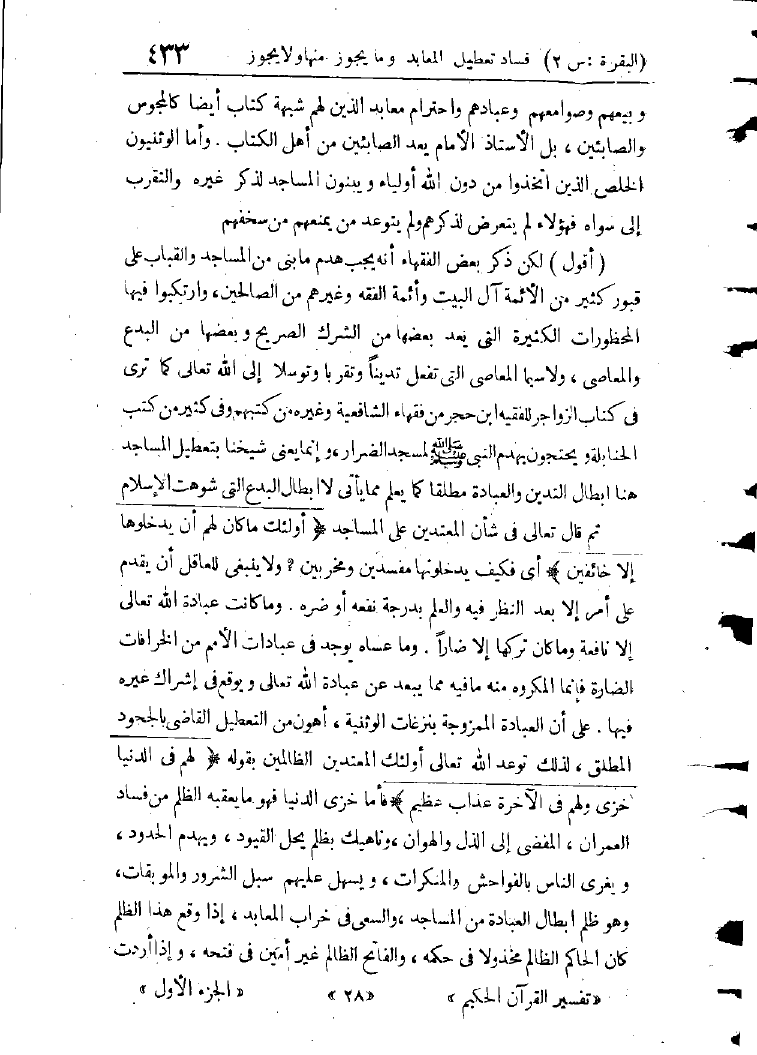 (البقرة : س ٢) فساد تعطيل المعابد وما يجوز منها ولا يجوز ٤٣٣
وبيعهم وصوامعهم وعبادهم واحترام معابد الذين لهم شبهة كتاب أيضا كالمجوس
والصابئين ، بل الأستاذ الامام يعد الصابئين من أهل الكتاب . وأما الوثنيون
الخلص الذين اتخذوا من دون الله أولياء ويبنون المساجد لذكر غيره والتقرب
إلى سواه فهؤلاء لم يتعرض لذكرهم ولم يتوعد من يمنعهم من سخفهم
( أقول ) لكن ذكر بعض الفقهاء أنه يجب هدم ما بنى من المساجد والقباب على
قبور كثير من الأئمة آل البيت وأئمة الفقه وغيرهم من الصالحين، وارتكبوا فيها
المحظورات الكثيرة التى يعد بعضها من الشرك الصريح وبعضها من البدع
والمعاصى ، ولاسيما المعاصى التى تفعل تديناً وتقربا وتوسلا إلى الله تعالى كما ترى
فى كتاب الزواجر للفقيه ابن حجر من فقهاء الشافعية وغيره من كتبهم وفى كثير من كتب
الحنابلة ويحتجون بهدم النبى ﷺ لمسجد الضرار ، وإنما يعنى شيخنا بتعطيل المساجد
هنا ابطال التدين والعبادة مطلقا كما يعلم مما يأتى لا ابطال البدع التى شوهت الإسلام
ثم قال تعالى فى شأن المعتدين على المساجد ﴿ أولئك ماكان لهم أن يدخلوها
إلا خائفين ﴾ أى فكيف يدخلونها مفسدين ومخربين ؟ ولا ينبغى للعاقل أن يقدم
على أمر إلا بعد النظر فيه والعلم بدرجة نفعه أو ضره . وماكانت عبادة الله تعالى
إلا نافعة وماكان تركها إلا ضاراً . وما عساه يوجد فى عبادات الأمم من الخرافات
الضارة فإنما المكروه منه مافيه مما يبعد عن عبادة الله تعالى ويوقع فى إشراك غيره
فيها . على أن العبادة الممزوجة بنزغات الوثنية ، أهون من التعطيل القاضى بالجحود
المطلق ، لذلك توعد الله تعالى أولئك المعتدين الظالمين بقوله ﴿ لهم فى الدنيا
خزى ولهم فى الآخرة عذاب عظيم ﴾ فأما خزى الدنيا فهو مايعقبه الظلم من فساد
العمران ، المفضى إلى الذل والهوان ، وناهيك بظلم يحل القيود ، ويهدم الحدود ،
ويغرى الناس بالفواحش والمنكرات ، ويسهل عليهم سبل الشرور والموبقات،
وهو ظلم ابطال العبادة من المساجد ، والسعى فى خراب المعابد ، إذا وقع هذا الظلم
كان الحاكم الظالم مخذولا فى حكمه ، والفاتح الظالم غير أمين فى فتحه ، وإذا أردت
«تفسير القرآن الحكيم » «٢٨» « الجزء الأول »